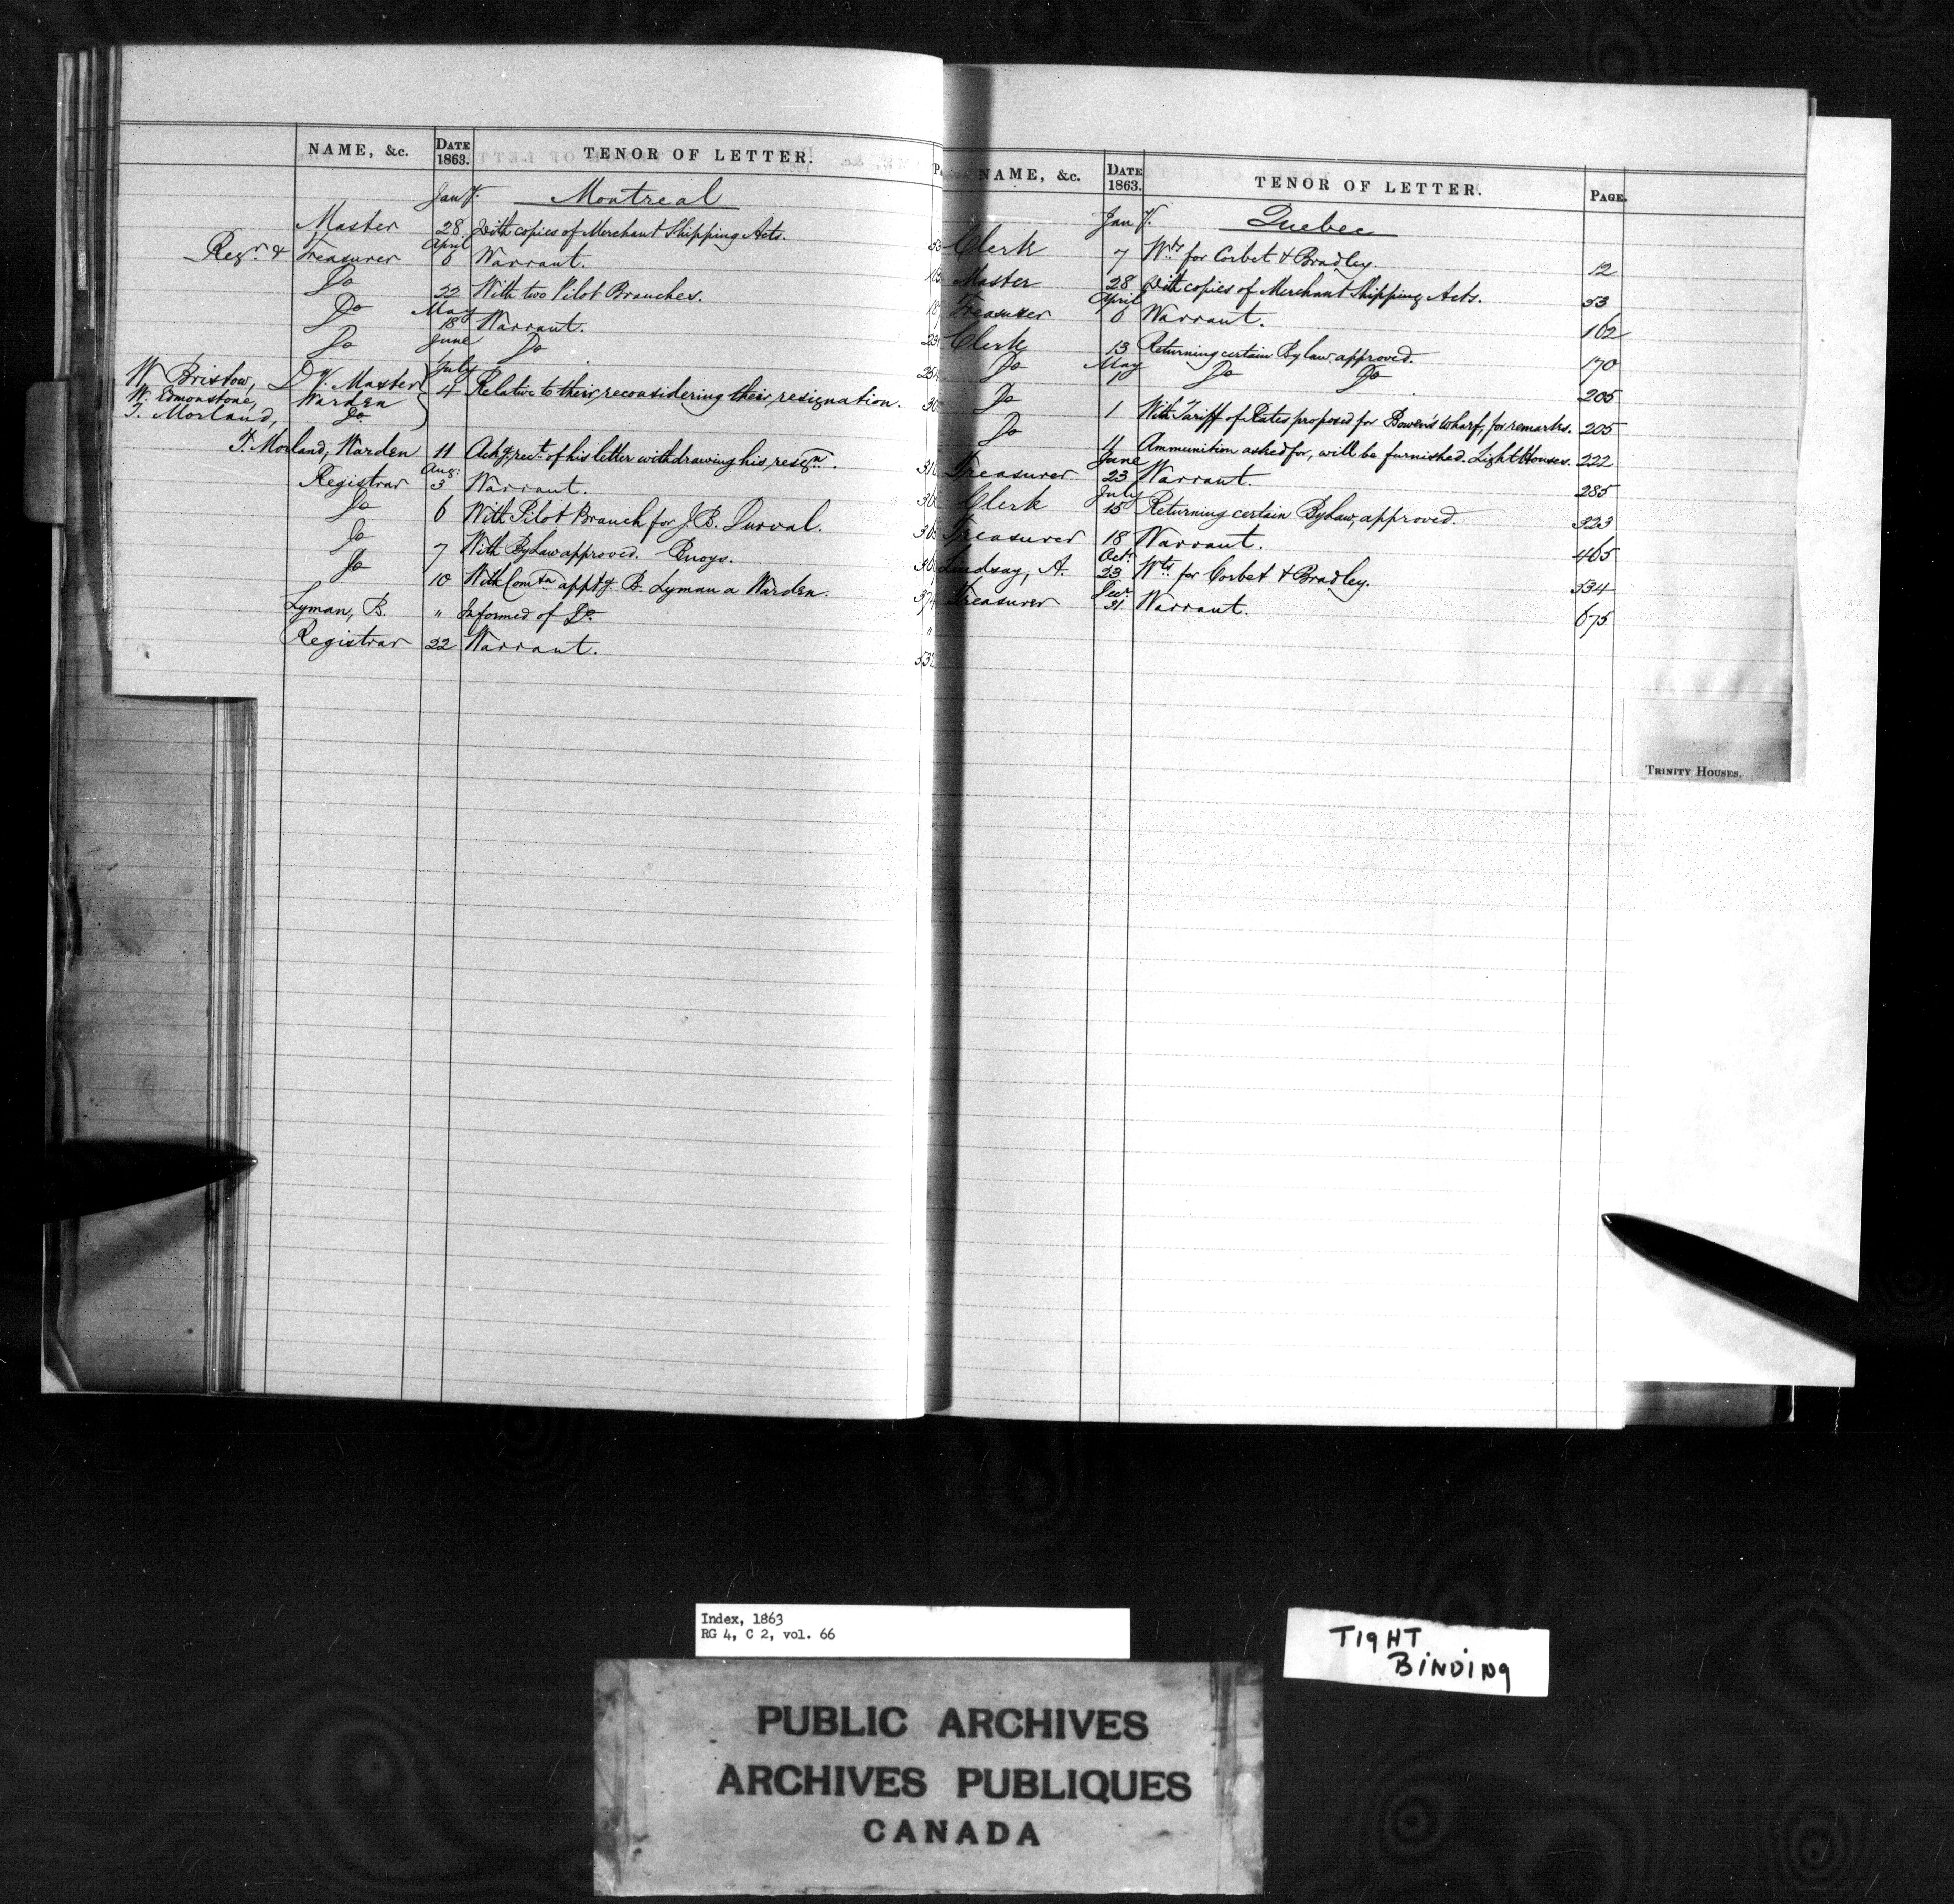 NAME, &c. DATE 1863. TENOR OF LETTER.
Jany. Montreal
Master 28 With copies of Merchant Shipping Acts. 53
Regr. & Treasurer April 6 Warrant.
Do 22 With two Pilot Branches.
Do May 18 Warrant.
Do June Do
W Bristow, Dy. Master July
W. Edmonstone, Warden 4 Relative to their reconsidering their resignation.
T. Morland, Do.
T. Morland, Warden 11 Ackg. rect. of his letter withdrawing his resign.
Registrar Aug: 3 Warrant.
Do 6 With Pilot Branch for J. B. Durval.
Do 7 With By Law approved. Buoys.
Do 10 With Comtn. apptg. B. Lyman a Warden.
Lyman, B. " Informed of Do.
Registrar 22 Warrant.
NAME, &c. DATE 1863. TENOR OF LETTER. PAGE.
Jany. Quebec
Clerk 7 Wts. for Corbet & Bradley. 12
Master 28 With copies of Merchant Shipping Acts. 53
Treasurer April 6 Warrant. 162
Clerk 13 Returning certain By law approved. 170
Do May 1 Do Do 205
Do 1 With Tariff of Rates proposed for Bowen's Wharf, for remarks. 205
Do 4 Ammunition asked for, will be furnished. Light Houses. 222
Treasurer June 23 Warrant. 285
Clerk July 15 Returning certain By Law, approved. 323
Treasurer 18 Warrant. 465
Lindsay, A. Octr. 23 Wts. for Corbet & Bradley. 534
Treasurer Decr. 31 Warrant. 675
TRINITY HOUSES.
Index, 1863
RG 4, C 2, vol. 66
TIGHT
BINDING
PUBLIC ARCHIVES
ARCHIVES PUBLIQUES
CANADA